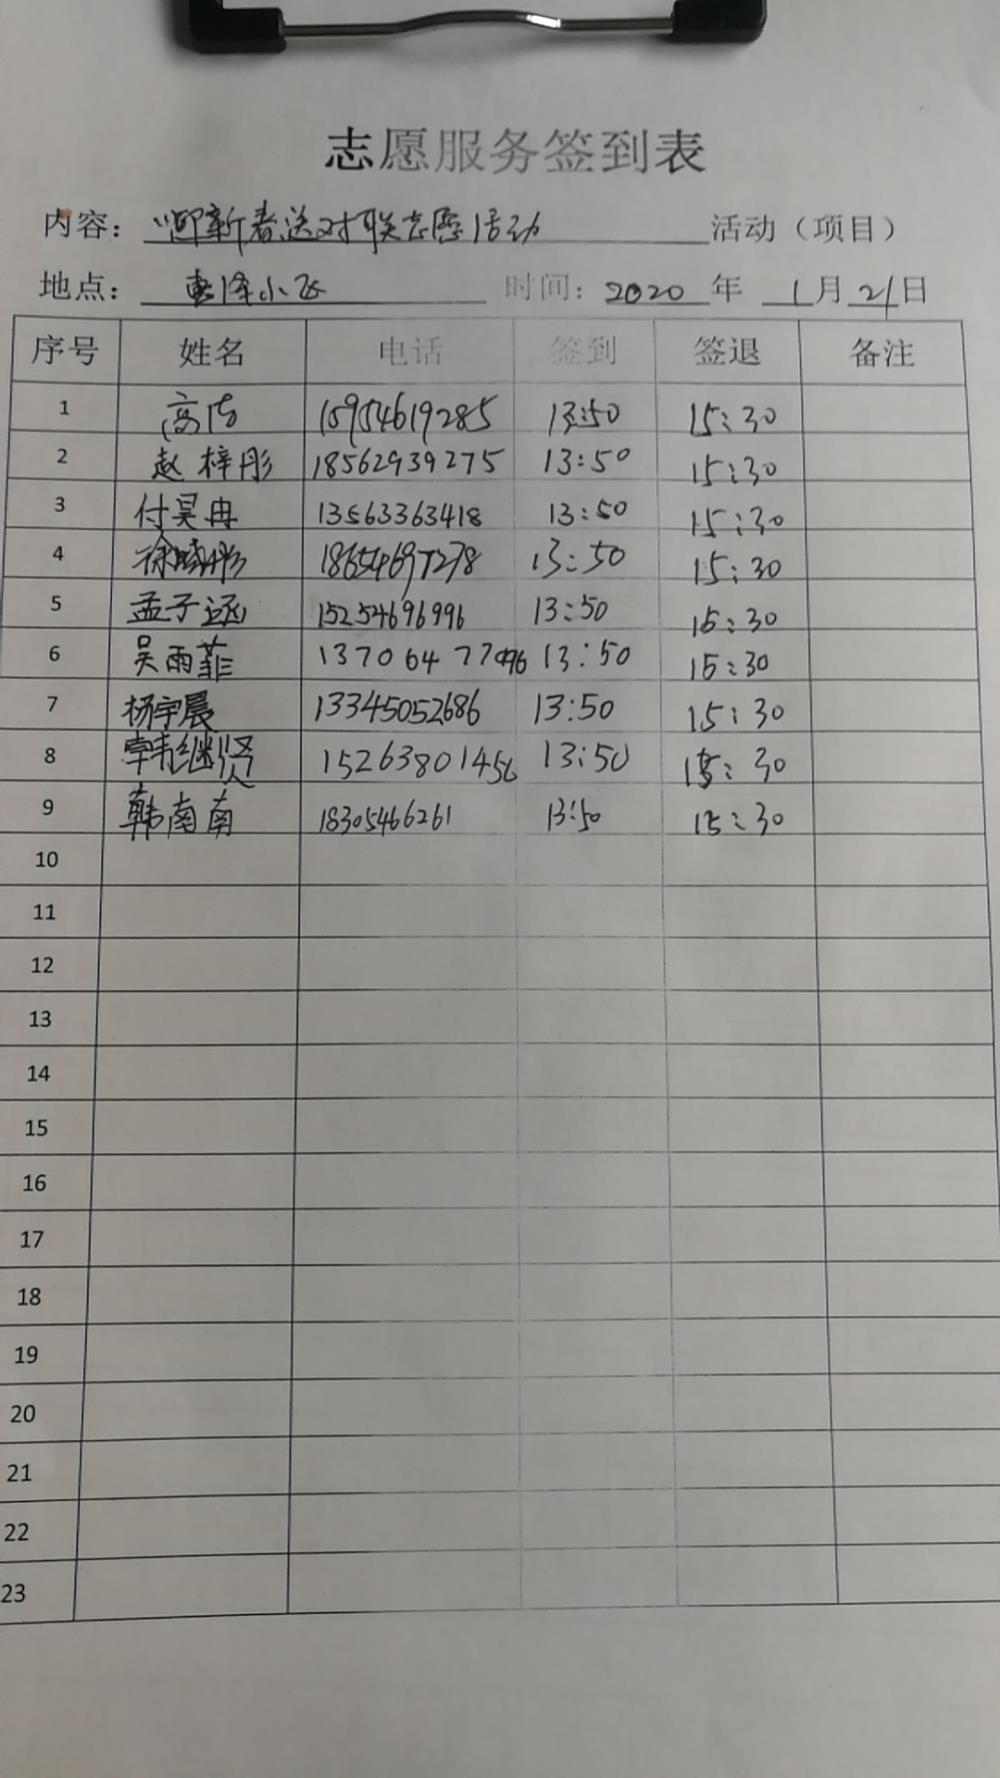 志愿服务签到表
内容：迎新春送对联志愿活动 活动（项目）
地点：惠泽小区 时间：2020年 1月21日
序号 姓名 电话 签到 签退 备注
1 高洁 15954619285 13:50 15:30
2 赵梓彤 18562939275 13:50 15:30
3 付昊冉 13563363418 13:50 15:30
4 徐晓彤 18654697278 13:50 15:30
5 孟子涵 15254696996 13:50 15:30
6 吴雨菲 13:50 15:30
7 杨宇晨 13345052686 13:50 15:30
8 韩继贤 15263801456 13:50 15:30
9 韩南南 18305466261 13:50 15:30
10
11
12
13
14
15
16
17
18
19
20
21
22
23